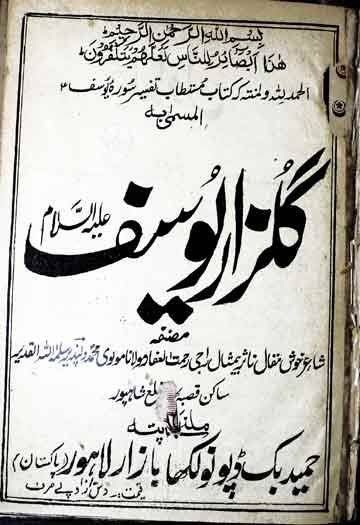 بسم الله الرحمن الرحیم
هٰذا بصائر للناس لعلهم یتفکرون
الحمد للہ والمنتہ کہ کتاب مستطاب تفسیر سورۃ یوسف
المسمیٰ بہ
گلزار یوسف علیہ السلام
مصنفہ
شاعر خوش مقال ناثر بیمثال راجی رحمت الغفار مولانا مولوی محمد دلپذیر سلمہ اللہ القدیر
ساکن قصبہ ضلع شاہپور
ملنے کا پتہ
حمید بک ڈپو نولکھا بازار لاہور (پاکستان)
قیمت